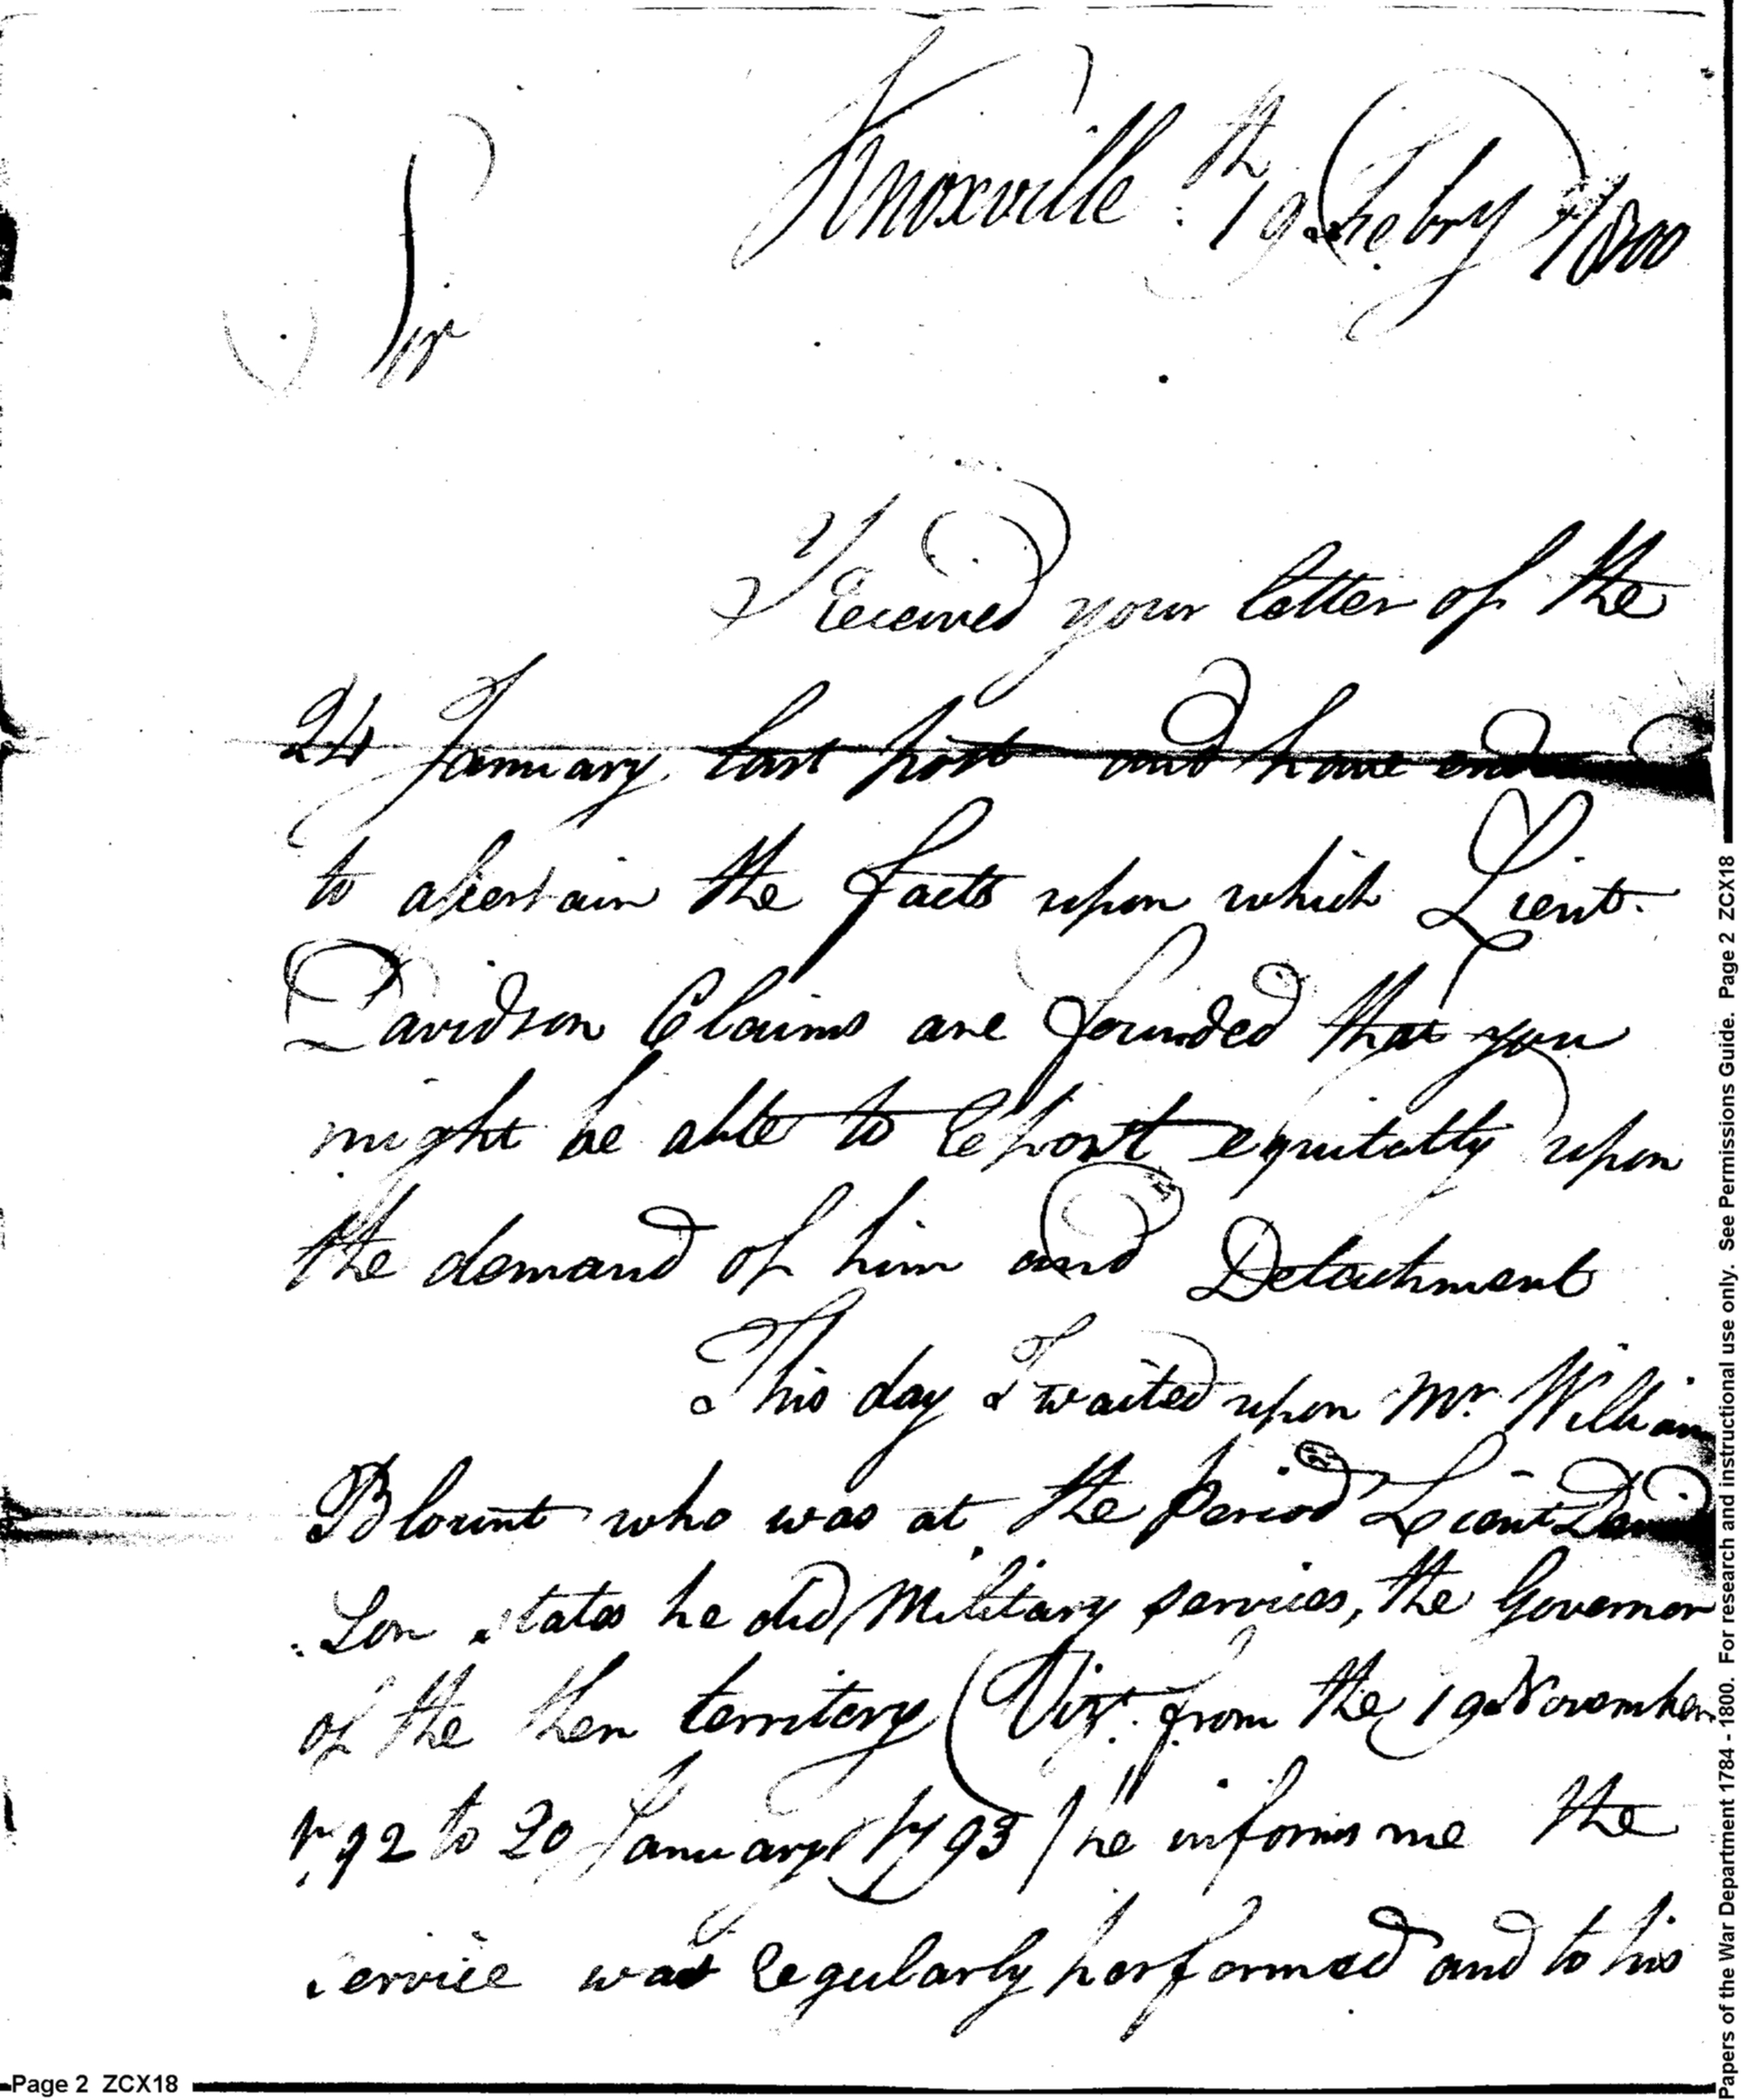 Knoxville 19th Febry 1800
Sir
I received your letter of the
24 January last post and have
to ascertain the facts upon which Lieut.
Davidson Claims are founded that you
might be able to report equitably upon
the demand of him and Detachment
This day I waited upon Mr. William
Blount who was at the period Lieut David
son states he did Military services, the Governor
of the then territory (Vizt. from the 19 November
1792 to 20 January 1793) he informs me the
service was regularly performed and to his
Page 2 ZCX18
Papers of the War Department 1784 - 1800. For research and instructional use only. See Permissions Guide. Page 2 ZCX18